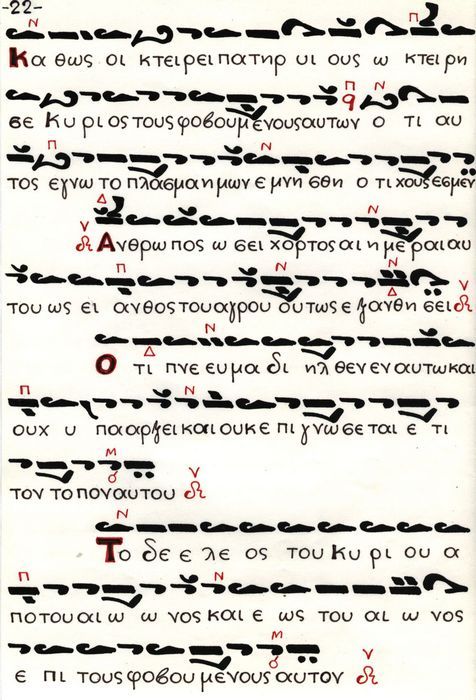 -22-
Κα θως οι κτειρει πατηρ υι ους ω κτειρη
σε Κυριος τους φοβουμενους αυτων ο τι αυ
τος εγνω το πλασμα ημων εμνησθη ο τι χους εσμεν
Ανθρωπος ω σει χορτος αι ημεραι αυ
του ως ει ανθος του αγρου ουτως εξανθησει
Ο τι πνευμα δι ηλθεν εν αυτω και
ουχ υ παρξει και ουκ ε πι γνωσεται ε τι
τον τοπον αυτου
Το δε ε λε ος του Κυρι ου α
πο του αι ω νος και ε ως του αι ω νος
ε πι τους φοβουμενους αυτον